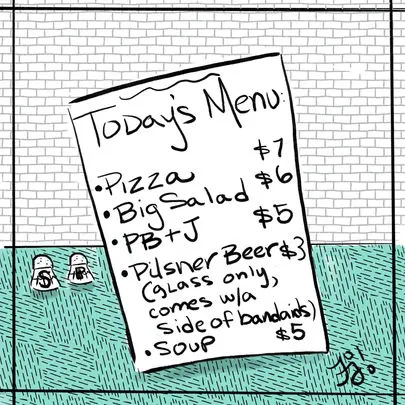 Today's Menu:
•Pizza $7
•Big Salad $6
•PB+J $5
•Pilsner Beer $3
(glass only,
comes w/a
side of bandaids)
•Soup $5
S P